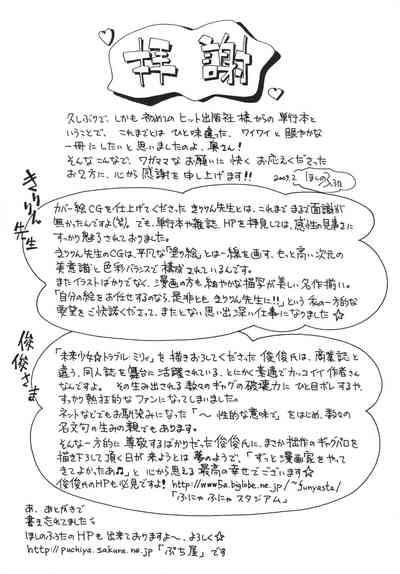 拝謝
久しぶりで、しかも初めてのヒット出版社様からの単行本と
いうことで、これまでとはひと味違った、ワイワイと賑やかな
一冊にしたいと思いましたのよ、奥さん!
そんなこんなで、ワガママなお願いに快くお応えくださった
お2方に、心から感謝を申し上げます!!
2009.2 ほしのふうた
きりりん先生
カバー絵CGを仕上げてくださったきりりん先生とは、これまでまるで面識が
無かったんですよ(笑)。でも、単行本や雑誌、HPを拝見しては、感性の見事さに
すっかり魅了されておりました。
きりりん先生のCGは、平凡な「塗り絵」とは一線を画す、もっと高い次元の
美意識と色彩バランスで構成されているんです。
またイラストばかりでなく、漫画の方も細やかな描写が美しい名作揃い。
「自分の絵をお任せするのなら、是非ともきりりん先生に!!」という私の一方的な
要望をご快諾くださって、またとない思い出深い仕事になりました☆
俊俊さま
「未来少女☆トラブル・ミリィ」を描きおろしてくださった俊俊氏は、商業誌と
違う、同人誌を舞台に活躍されている、とにかく素通でカッコイイ作者さん
なんですよ。その生み出される数々のギャグの破壊力にひと目ボレするや、
すっかり熱狂的なファンになってしまいました。
ネットなどでもお馴染みになった「～性的な意味で」をはじめ、数々の
名文句の生みの親でもあります。
そんな一方的に尊敬するばかりだった俊俊氏に、まさか拙作のギャグパロを
描き下して頂く日が来ようとは夢のようで、「ずっと漫画家をやって
きてよかったあ♫」と心から思える最高の幸せでございます☆
俊俊氏のHPも必見ですよ! http://www5a.biglobe.ne.jp/~funyasta/
「ふにゃふにゃスタジアム」
あ、あとがきで
書き忘れてました
ほしのふうたのHPも出来ておりますよ～、よろしく☆
http://puchiya.sakura.ne.jp 「ぷち屋」です